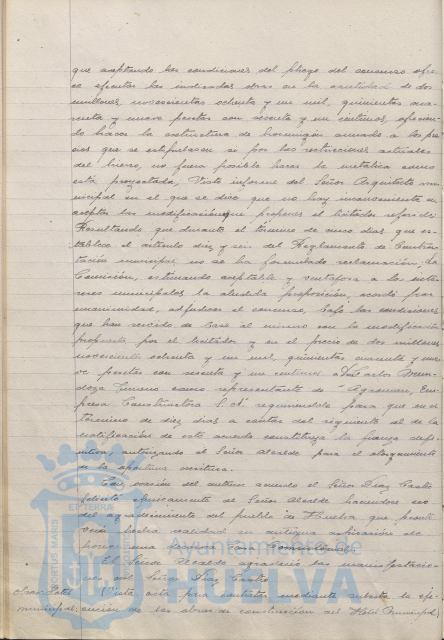 que aceptando las condiciones del pliego del concurso ofre-
ce efectuar las indicadas obras en la cantidad de dos
millones, novecientos ochenta y un mil, quinientas cua-
renta y nueve pesetas con sesenta y un centimos, ofrecien-
do hacer la estructura de hormigón armado a los pre-
cios que se estipulasen si por las restricciones actuales
del hierro, no fuera posible hacer la metalica como
esta proyectada, Visto informe del Señor Arquitecto mu-
nicipal en el que se dice que no hay inconveniente en
aceptar las modificaciones que propone el licitador referido
Resultando que durante el termino de cinco dias que es-
tablece el articulo diez y seis del Reglamento de Contra-
tación municipal no se ha formulado reclamación, La
Comisión, estimando aceptable y ventajosa a los inte-
reses municipales la aludida proposición, acordó por
unanimidad, adjudicar el concurso, bajo las condiciones
que han servido de base al mismo con la modificación
propuesta por el licitador y en el precio de dos millones
novecientos ochenta y un mil, quinientas cuarenta y nue-
ve pesetas con sesenta y un centimos a Don Carlos Men-
doza Gimeno como representante de "Agroman, Em-
presa Constructora S.A." requiriendole para que en el
termino de diez dias a contar del siguiente al de la
notificación de este acuerdo constituya la fianza defi-
nitiva, autorizando al Señor Alcalde para el otorgamiento
de la oportuna escritura.
Con ocasión del anterior acuerdo el Señor Diaz Castro
felicitó efusivamente al Señor Alcalde haciendose eco
del agradecimiento del pueblo de Huelva, que pronto
verá hecha realidad su antigua aspiración de
poseer una decorosa Casa Consistorial
El Señor Alcalde agradeció las manifestacio-
nes del Señor Diaz Castro
Vista acta para contratar mediante subasta la eje-
municipal. cución de las obras de construcción del Hotel Municipal,
Ayuntamiento de
HUELVA
PORTUS MARIS
ET TERRÆ